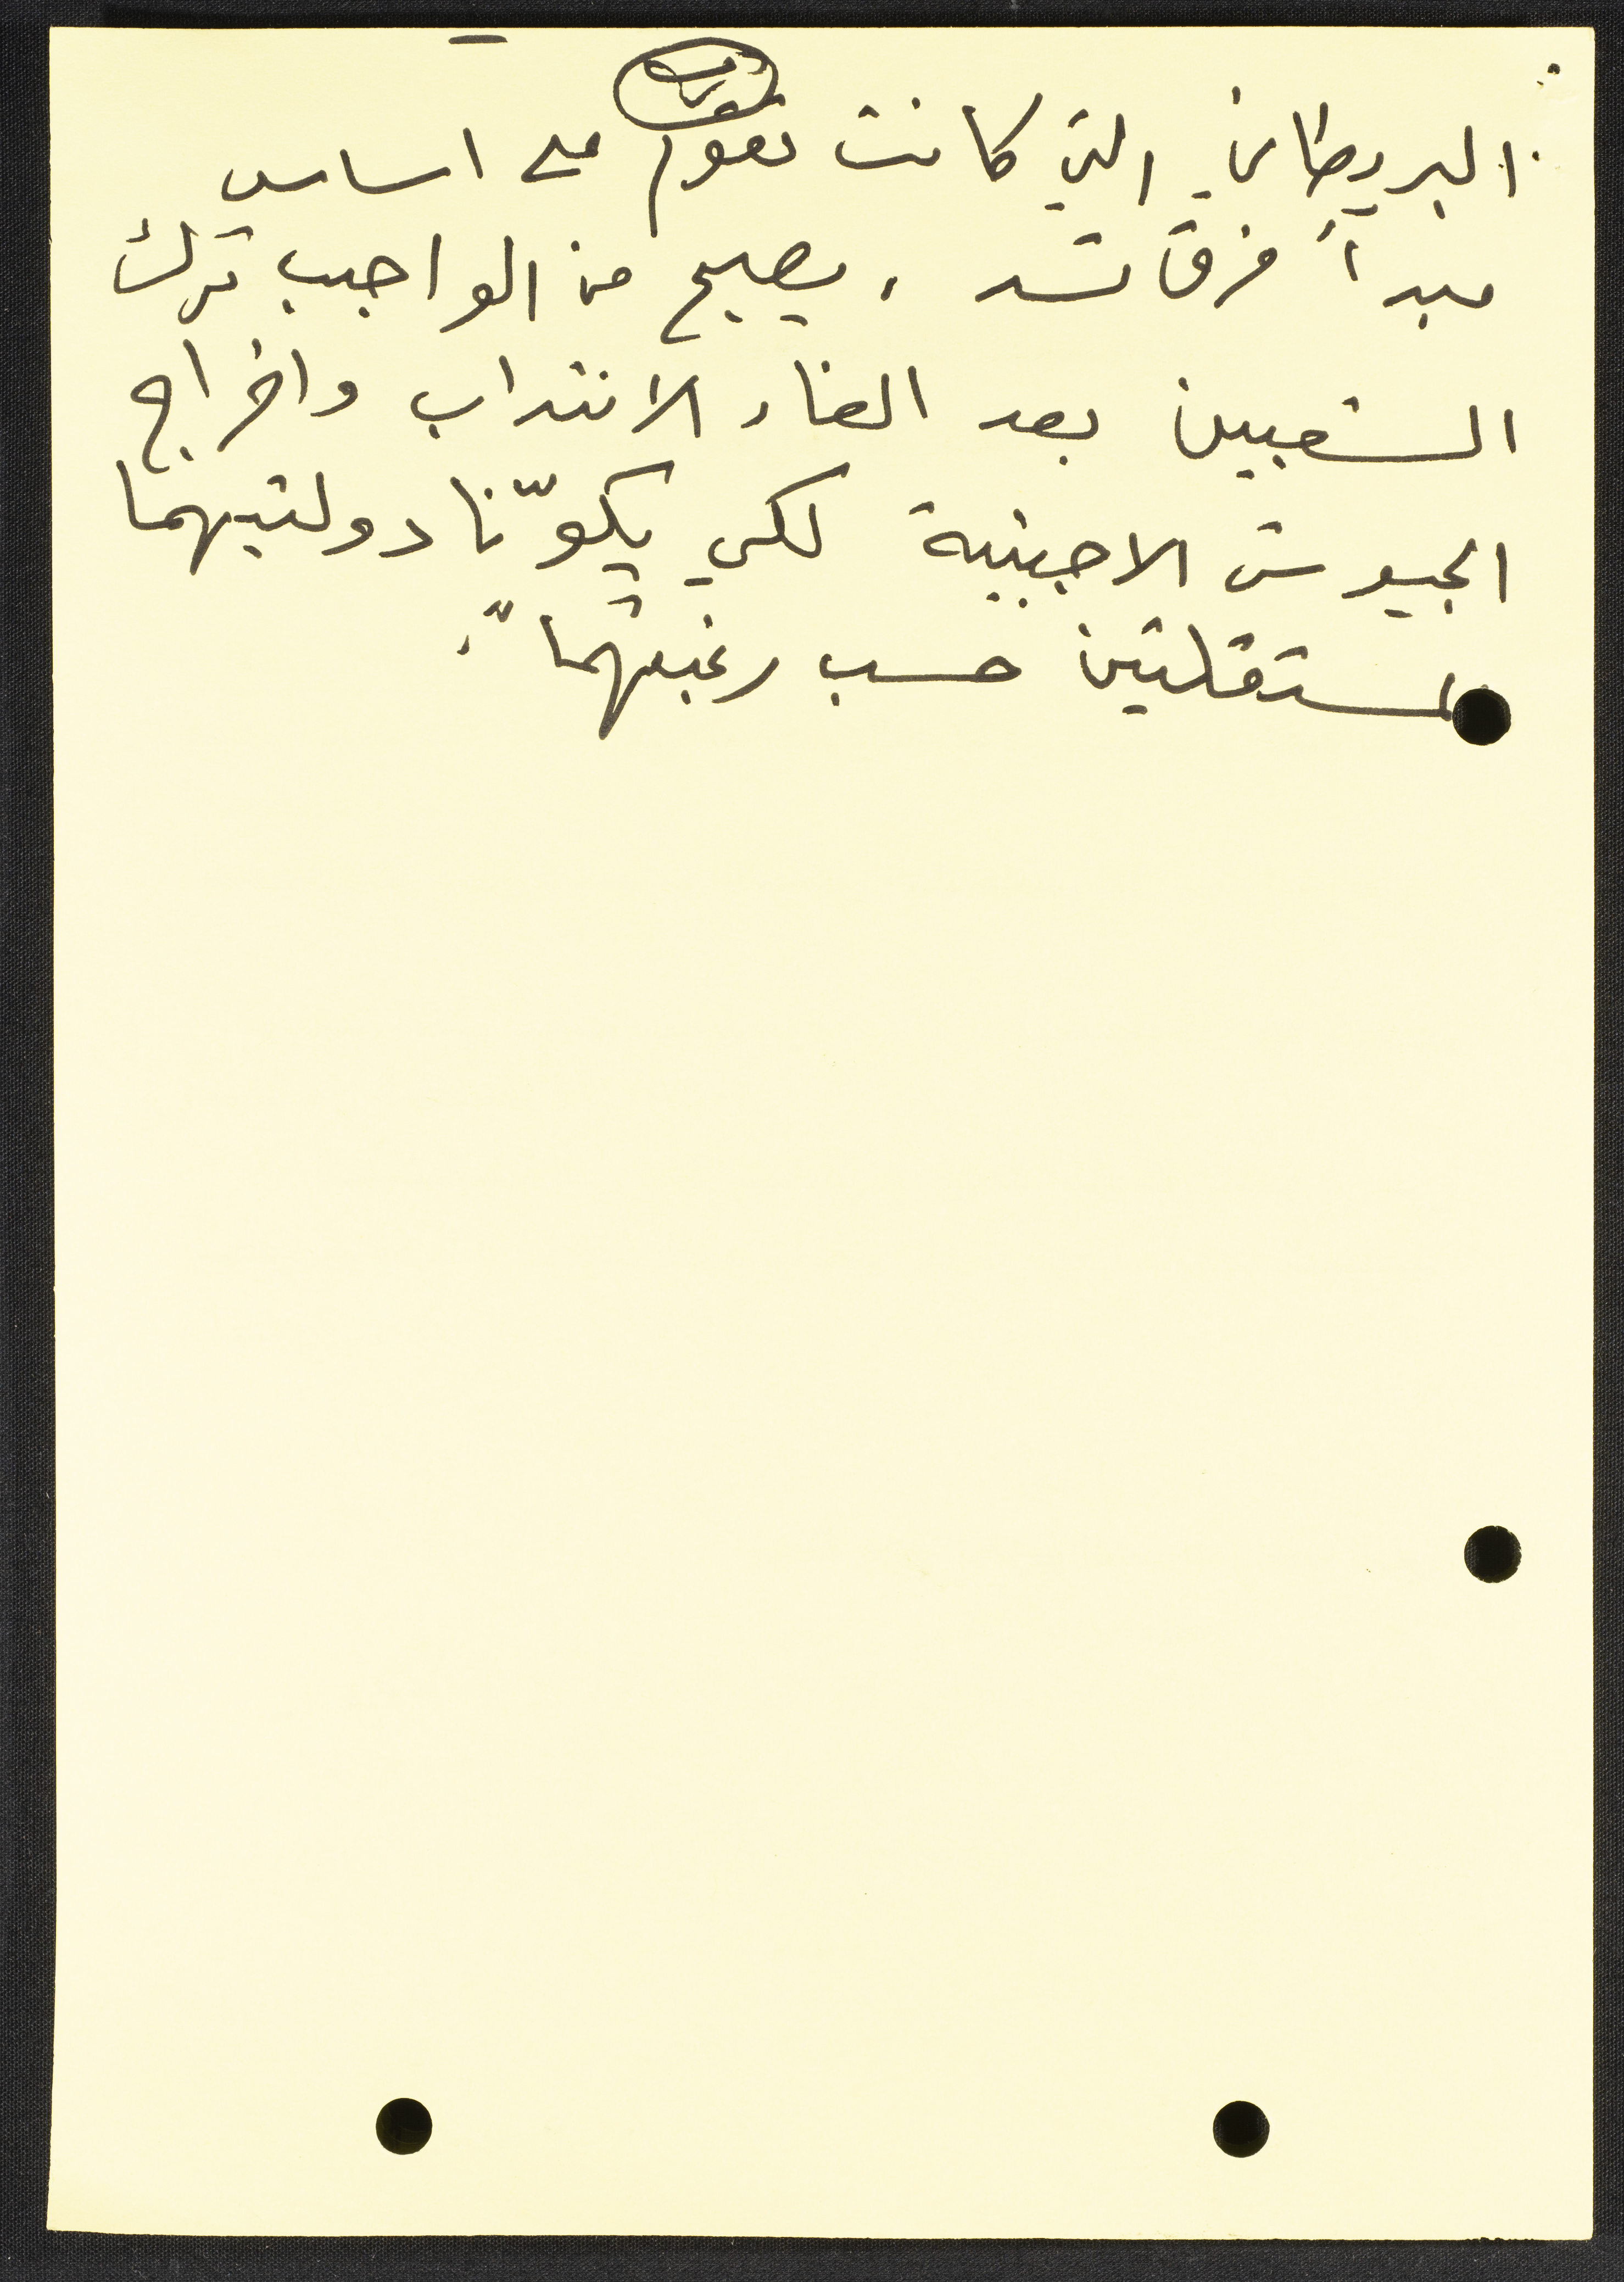 البريطاني التي كانت تقوم على اساس
مبدأ فرق تسد ، يصبح من الواجب ترك
الشعبين بعد الغاء الانتداب واخراج
الجيوش الاجنبية لكي يكوّنا دولتيهما
المستقلتين حسب رغبتهما".